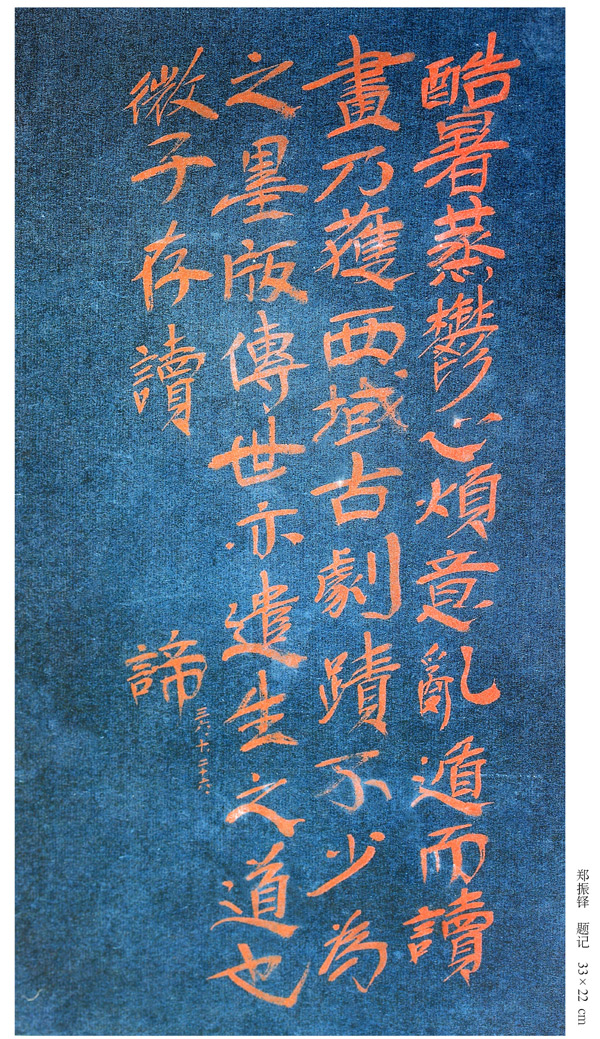 酷暑蒸鬱心煩意亂遁而讀
畫乃獲西域古劇蹟不少為
之墨版傳世亦遣生之道也
微子存讀
諦
三六、十、二十六、
郑振铎 题记 33×22 cm